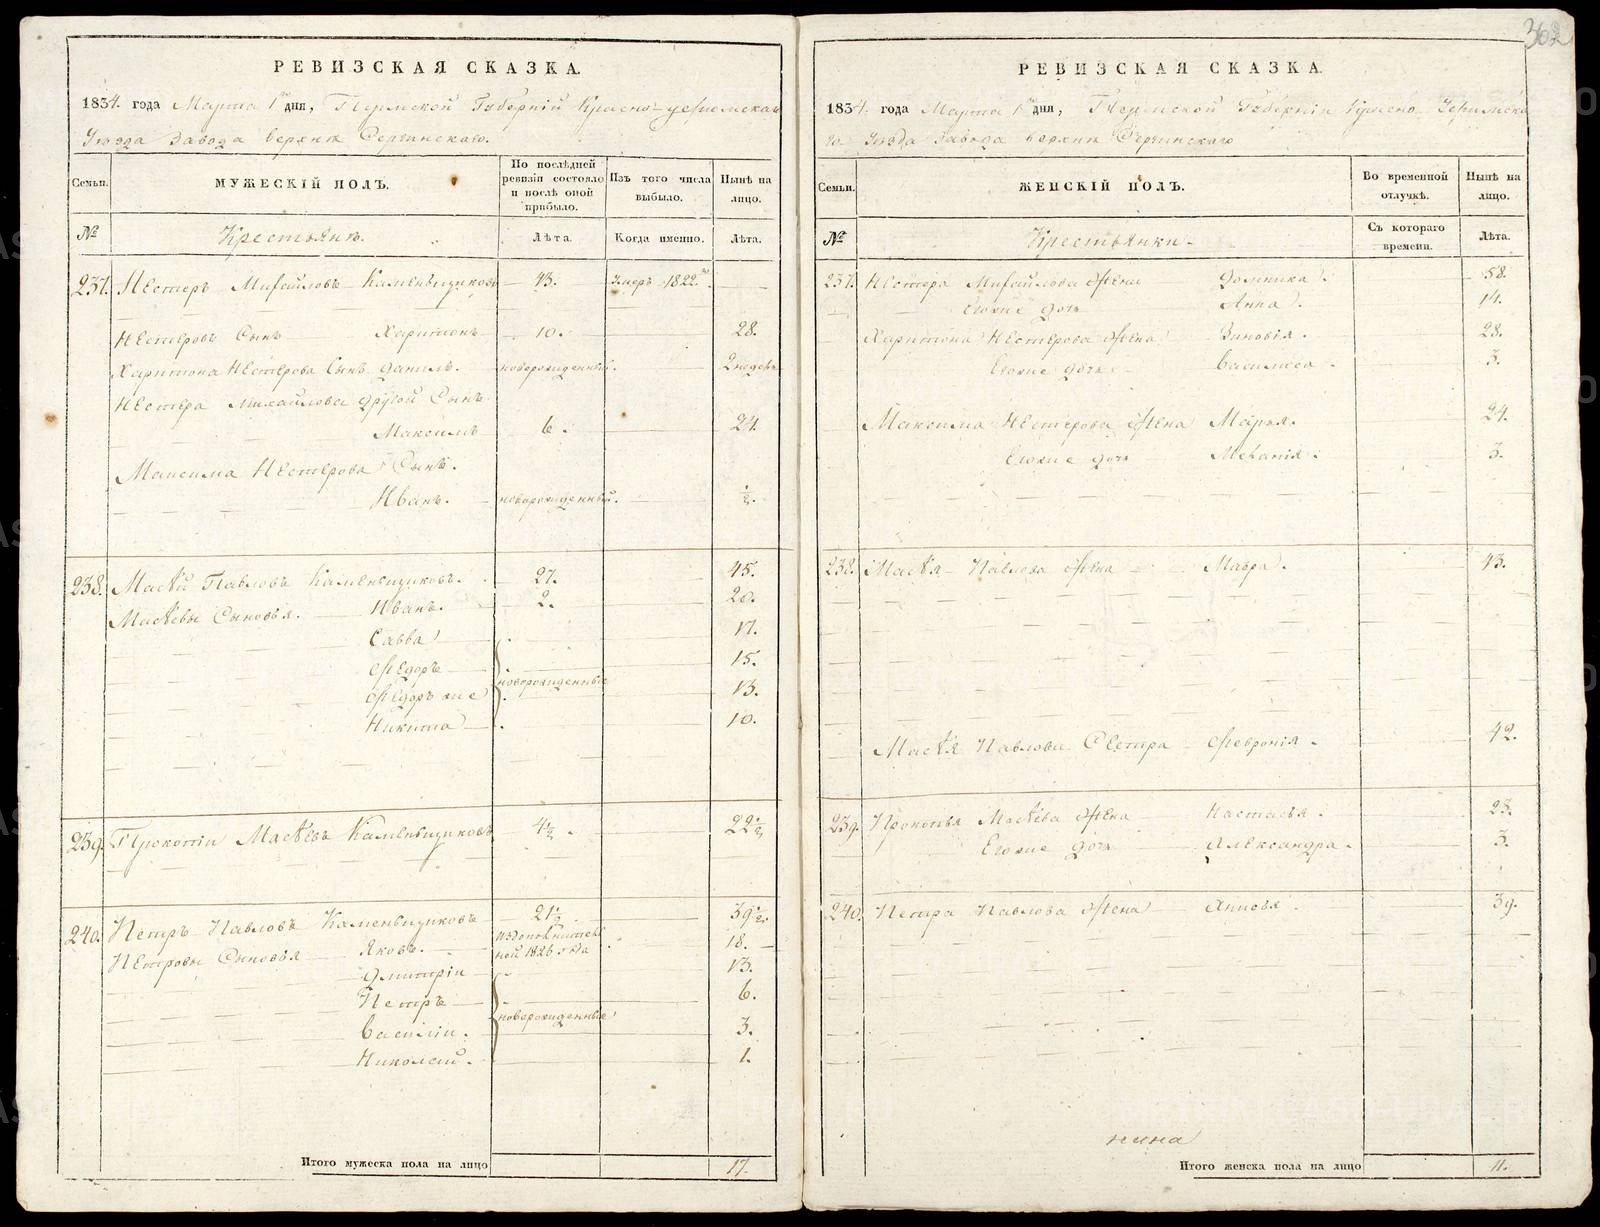 362
РЕВИЗСКАЯ СКАЗКА.
1834. года Марта 1го дня, Пермской Губерніи Красно-уфимскаго
Уѣзда Завода верхнѣ Сергинскаго.
Семьи.
МУЖЕСКІЙ ПОЛЪ.
По послѣдней ревизіи состояло и послѣ оной прибыло.
Изъ того числа выбыло.
Нынѣ на лицо.
№
Крестьянѣ.
Лѣта.
Когда именно.
Лѣта.
237. Нестеръ Михайловъ Каменьщиковъ 43. Умеръ 1822го
Нестеровъ Сынъ Харитонъ 10. 28.
Харитона Нестерова Сынъ Данилъ. новорожденный. 2 недѣли
Нестера Михайлова другой Сынъ
Максимъ 6. 24.
Максима Нестерова Сынъ.
Иванъ. новорожденный. ½.
238. Маѳей Павловъ Каменьщиковъ. 27. 45.
Маѳевы Сыновья. Иванъ. 2. 20.
Савва 17.
Ѳедоръ 15.
новорожденные
Ѳедоръ же 13.
Никита 10.
239. Прокопій Маѳеевъ Каменьщиковъ 4½. 22½
240. Петръ Павловъ Каменьщиковъ 21½ 39½.
Петровы Сыновья Яковъ. 1826 года 18.
Дмитрій 13.
Петръ 6.
новорожденные
Василій. 3.
Николай. 1.
Итого мужеска пола на лицо 17.
РЕВИЗСКАЯ СКАЗКА.
1834. года Марта 1го дня, Пермской Губерніи Красно Уфимска
го Уѣзда Завода верхнѣ Сергинскаго
Семьи.
ЖЕНСКІЙ ПОЛЪ.
Во временной отлучкѣ.
Нынѣ на лицо.
№
Крестьянки.
Съ котораго времени.
Лѣта.
237. Нестера Михайлова Жена Домника. 58.
Егоже дочь Анна. 14.
Харитона Нестерова Жена Зиновія. 28.
Егоже дочь Василиса. 3.
Максима Нестерова Жена Марья. 24.
Егоже дочь Меланія. 3.
238. Маѳея Павлова Жена Мавра. 43.
Маѳея Павлова Сестра Ѳевронія. 42.
239. Прокопья Маѳеева Жена Настасья. 23.
Егоже дочь Александра. 3.
240. Петра Павлова Жена Анисья. 39.
Итого женска пола на лицо 11.